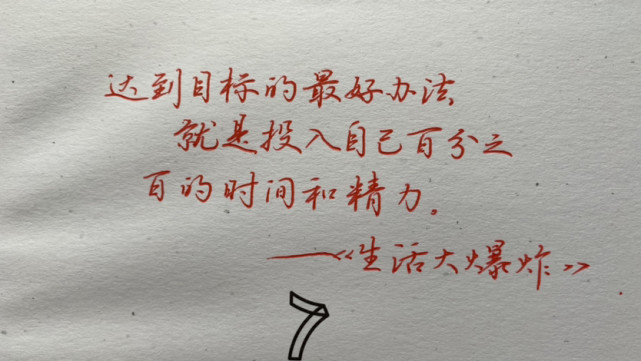 达到目标的最好办法
就是投入自己百分之
百的时间和精力。
——《生活大爆炸》
7